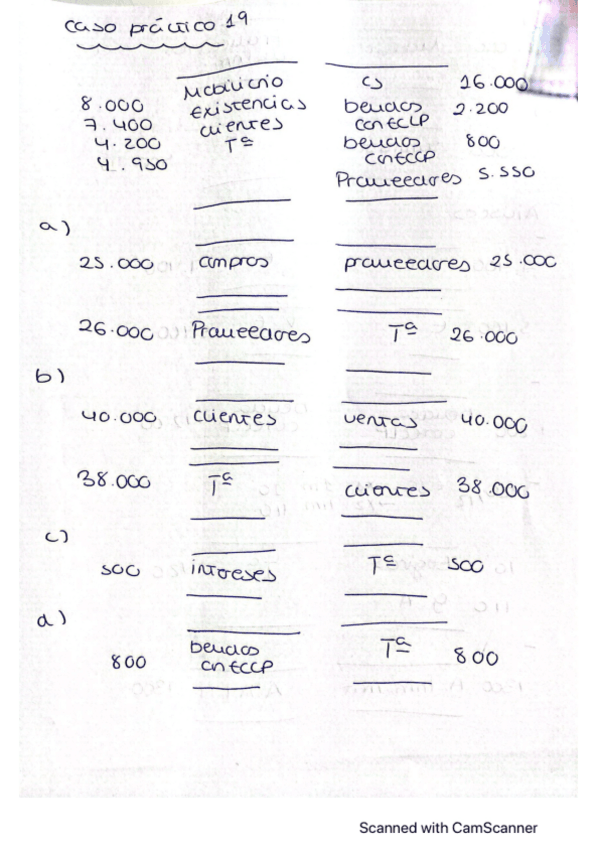 Caso práctico 19
8.000 Mobiliario CS 16.000
7.400 Existencias
4.200 clientes
4.950 Tª
2.200
800
Proveedores 5.550
a)
25.000 compras proveedores 25.000
26.000 Proveedores Tª 26.000
b)
40.000 clientes ventas 40.000
38.000 Tª clientes 38.000
c)
500 intereses Tª 500
d)
800 Tª 800
Scanned with CamScanner